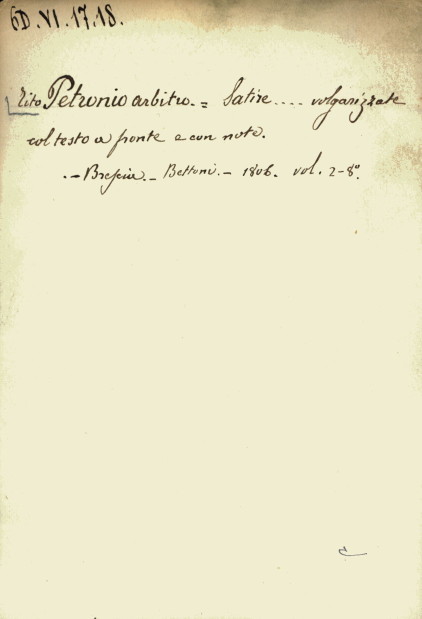 6D.VI.17.18.
Tito Petronio arbitro. = Satire .... volgarizzate
col testo a fronte e con note.
. - Brescia. - Bettoni. - 1806. vol. 2-8º.